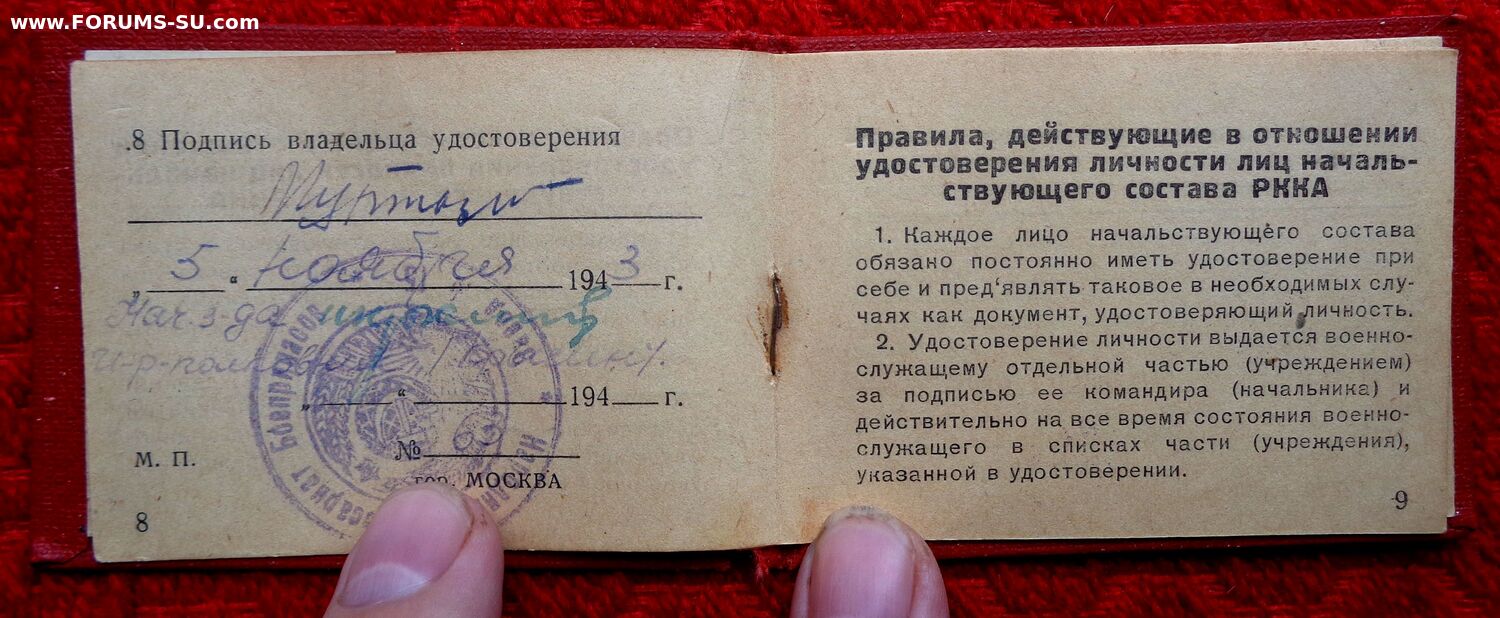 www.FORUMS-SU.com
.8 Подпись владельца удостоверения
„ 5 “ ноября 1943 г.
Нач. з-да
„ “ 194 г.
№
М. П.
гор. МОСКВА
8
Наркомат Боеприпасов
Правила, действующие в отношении
удостоверения личности лиц началь-
ствующего состава РККА
1. Каждое лицо начальствующего состава
обязано постоянно иметь удостоверение при
себе и пред‘являть таковое в необходимых слу-
чаях как документ, удостоверяющий личность.
2. Удостоверение личности выдается военно-
служащему отдельной частью (учреждением)
за подписью ее командира (начальника) и
действительно на все время состояния военно-
служащего в списках части (учреждения),
указанной в удостоверении.
9